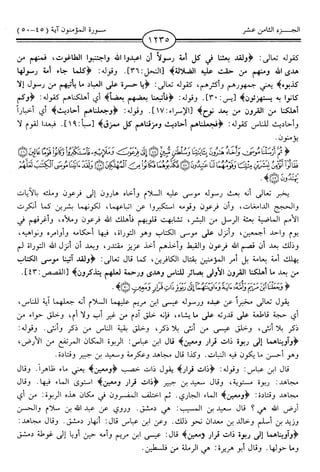 الجزء الثامن عشر
١٢٣٥
سورة المؤمنون آية (٤٥-٥٠)
كقوله تعالى: ﴿ولقد بعثنا في كل أمة رسولاً أن اعبدوا الله واجتنبوا الطاغوت، فمنهم من
هدى الله ومنهم من حقت عليه الضلالة﴾ [النحل:٣٦]. وقوله: ﴿كلما جاء أمة رسولها
كذبوه﴾ يعني جمهورهم وأكثرهم، كقوله تعالى: ﴿يا حسرة على العباد ما يأتيهم من رسول إلا
كانوا به يستهزئون﴾ [يس:٣٠]. وقوله: ﴿فأتبعنا بعضهم بعضاً﴾ أي أهلكناهم كقوله: ﴿وكم
أهلكنا من القرون من بعد نوح﴾ [الإسراء:١٧]. وقوله: ﴿وجعلناهم أحاديث﴾ أي أخباراً
وأحاديث للناس كقوله: ﴿فجعلناهم أحاديث ومزقناهم كل ممزق﴾ [سبأ:١٩]. فبعدا لقوم لا
يؤمنون.
يخبر تعالى أنه بعث رسوله موسى عليه السلام وأخاه هارون إلى فرعون وملئه بالآيات
والحجج الدامغات، وأن فرعون وقومه استكبروا عن اتباعهما، لكونهما بشرين كما أنكرت
الأمم الماضية بعثة الرسل من البشر، تشابهت قلوبهم فأهلك الله فرعون وملأه، وأغرقهم في
يوم واحد أجمعين، وأنزل على موسى الكتاب وهو التوراة، فيها أحكامه وأوامره ونواهيه،
وذلك بعد أن قصم الله فرعون والقبط وأخذهم أخذ عزيز مقتدر، وبعد أن أنزل الله التوراة لم
يهلك أمة بعامة بل أمر المؤمنين بقتال الكافرين، كما قال تعالى: ﴿ولقد آتينا موسى الكتاب
من بعد ما أهلكنا القرون الأولى بصائر للناس وهدى ورحمة لعلهم يتذكرون﴾ [القصص:٤٣].
يقول تعالى مخبراً عن عبده ورسوله عيسى ابن مريم عليهما السلام أنه جعلهما آية للناس،
أي حجة قاطعة على قدرته على ما يشاء، فإنه خلق آدم من غير أب ولا أم، وخلق حواء من
ذكر بلا أنثى، وخلق عيسى من أنثى بلا ذكر، وخلق بقية الناس من ذكر وأنثى. وقوله:
﴿وآويناهما إلى ربوة ذات قرار ومعين﴾ قال ابن عباس: الربوة المكان المرتفع من الأرض،
وهو أحسن ما يكون فيه النبات. وكذا قال مجاهد وعكرمة وسعيد بن جبير وقتادة.
قال ابن عباس: قوله: ﴿ذات قرار﴾ يقول ذات خصب ﴿ومعين﴾ يعني ماء ظاهراً. وقال
مجاهد: ربوة مستوية، وقال سعيد بن جبير ﴿ذات قرار ومعين﴾ استوى الماء فيها. وقال
مجاهد وقتادة: ﴿ومعين﴾ الماء الجاري. ثم اختلف المفسرون في مكان هذه الربوة: من أي
أرض الله هي ؟ قال سعيد بن المسيب: هي دمشق. وروي عن عبد الله بن سلام والحسن
وزيد بن أسلم وخالد بن معدان نحو ذلك. وعن ابن عباس قال: أنهار دمشق. وقال مجاهد:
﴿وآويناهما إلى ربوة ذات قرار ومعين﴾ قال: عيسى ابن مريم وأمه حين أويا إلى غوطة دمشق
وما حولها. وقال أبو هريرة: هي الرملة من فلسطين.